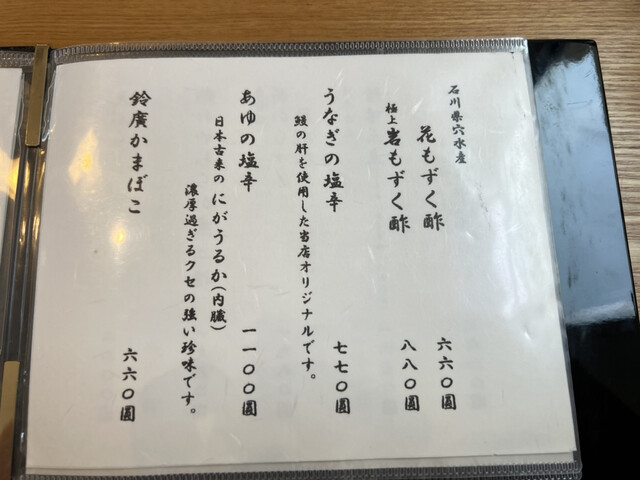 石川県穴水産
花もずく酢 六六〇圓
極上 岩もずく酢 八八〇圓
うなぎの塩辛 七七〇圓
鰻の肝を使用した当店オリジナルです。
あゆの塩辛 一一〇〇圓
日本古来の にがうるか(内臓)
濃厚過ぎるクセの強い珍味です。
鈴廣かまぼこ 六六〇圓